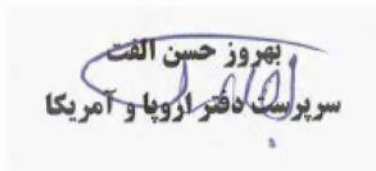 بهروز حسن الفت
سرپرست دفتر اروپا و آمریکا